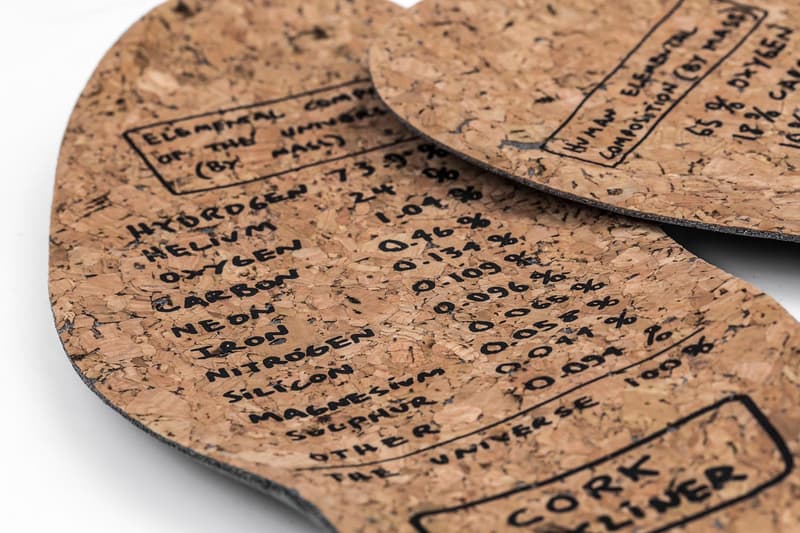 ELEMENTAL COMP
OF THE UNIVER
(BY MASS)
HYDROGEN 73.9 %
HELIUM 24 %
OXYGEN 1.04 %
CARBON 0.46 %
NEON 0.134 %
IRON 0.109 %
NITROGEN 0.096 %
SILICON 0.065 %
MAGNESIUM 0.058 %
SULPHUR 0.044 %
OTHER 0.094 %
THE UNIVERSE 100%
CORK
HUMAN ELEMENTAL
COMPOSITION (BY MASS)
65 % OXYGEN
18 % CAR
10%